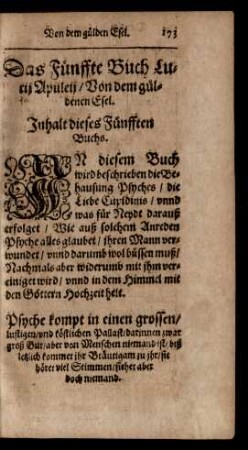 Von dem gülden Esel. 173
Das Fünffte Buch Lu-
cij Apuleij / Von dem gül-
denen Esel.
Inhalt dieses Fünfften
Buchs.
IN diesem Buch
wird beschrieben die Be-
hausung Psyches / die
Liebe Cupidinis / vnnd
was für Neydt darauß
erfolget / Wie auß solchem Anreden
Psyche alles glaubet / ihren Mann ver-
wundet / vnnd darumb wol büssen muß /
Nachmals aber widerumb mit ihm ver-
einiget wird / vnnd in dem Himmel mit
den Göttern Hochzeit helt.
Psyche kompt in einen grossen /
lustigen / vnd köstlichen Pallast / darinnen zwar
groß Gut / aber von Menschen niemand ist / biß
letzlich kommet ihr Bräutigam zu jhr / sie
höret viel Stimmen / siehet aber
doch niemand.